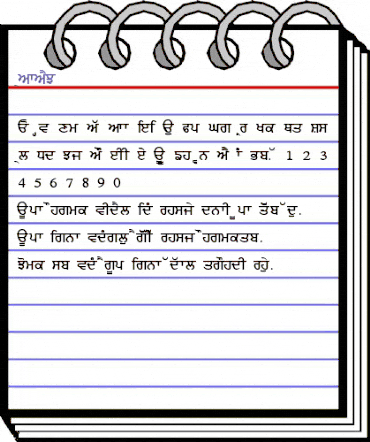 ੍ਰਆਐਝ
ਓ ੍ਵ ਣਮ ਅੱ ਆਾ ਇਿ ਉ ਫਪ ਘਗ ੍ਰ ਖਕ ਥਤ ਸ਼ਸ
੍ਲ ਧਦ ਝਜ ਔ ਈੀ ਏ ਊੂ ਙਹ੍ਹਨ ਐ ਾਂ ਭਬ ਁ 1 2 3
4 5 6 7 8 9 0
ਊਪਾੌਹਗਮਕ ਵੀਦੈਲ ਦਿੰ ਰਹਸਜੇ ਦਨਾੀੂਪਾ ਤੋਂਬੱਦੁ.
ਊਪਾ ਗਿਨਾ ਵਦੰਗਲੁੈਗੌੀਂ ਰਹਸਜੌਹਗਮਕਤਬ.
ਝੋਮਕ ਸਬ ਵਦੰੈਗੂਪ ਗਿਨਾੱਦਾੱਲ ਤਗੌਹਦੀ ਰਹੇ.